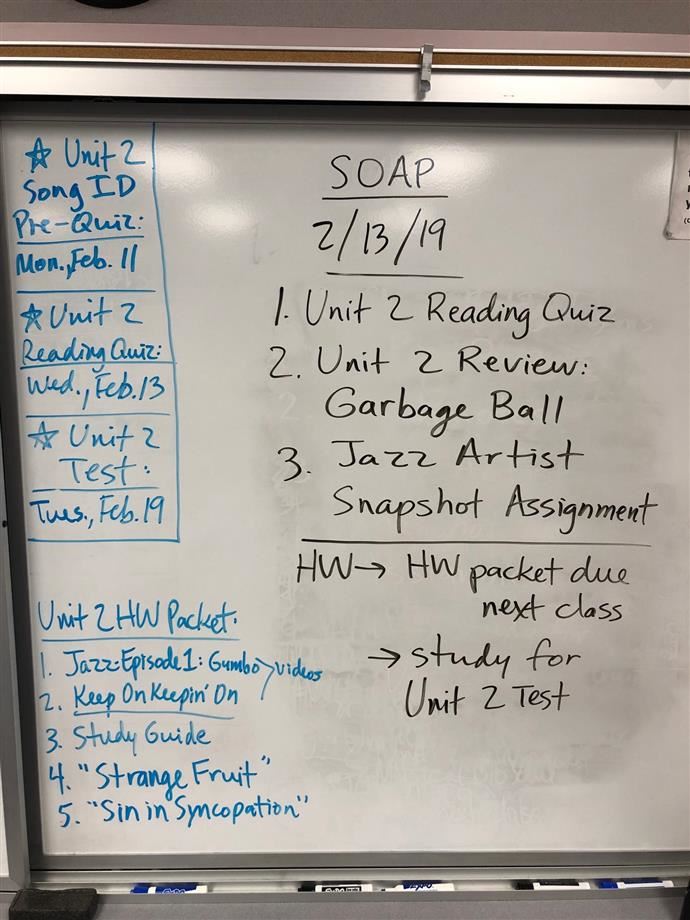 ☆ Unit 2
Song ID
Pre-Quiz:
Mon., Feb. 11
☆ Unit 2
Reading Quiz:
Wed., Feb. 13
☆ Unit 2
Test:
Tues., Feb. 19
Unit 2 HW Packet:
1. Jazz: Episode 1: Gumbo > videos
2. Keep On Keepin' On
3. Study Guide
4. "Strange Fruit"
5. "Sin in Syncopation"
SOAP
2/13/19
1. Unit 2 Reading Quiz
2. Unit 2 Review:
Garbage Ball
3. Jazz Artist
Snapshot Assignment
HW → HW packet due
next class
→ study for
Unit 2 Test
EXPO